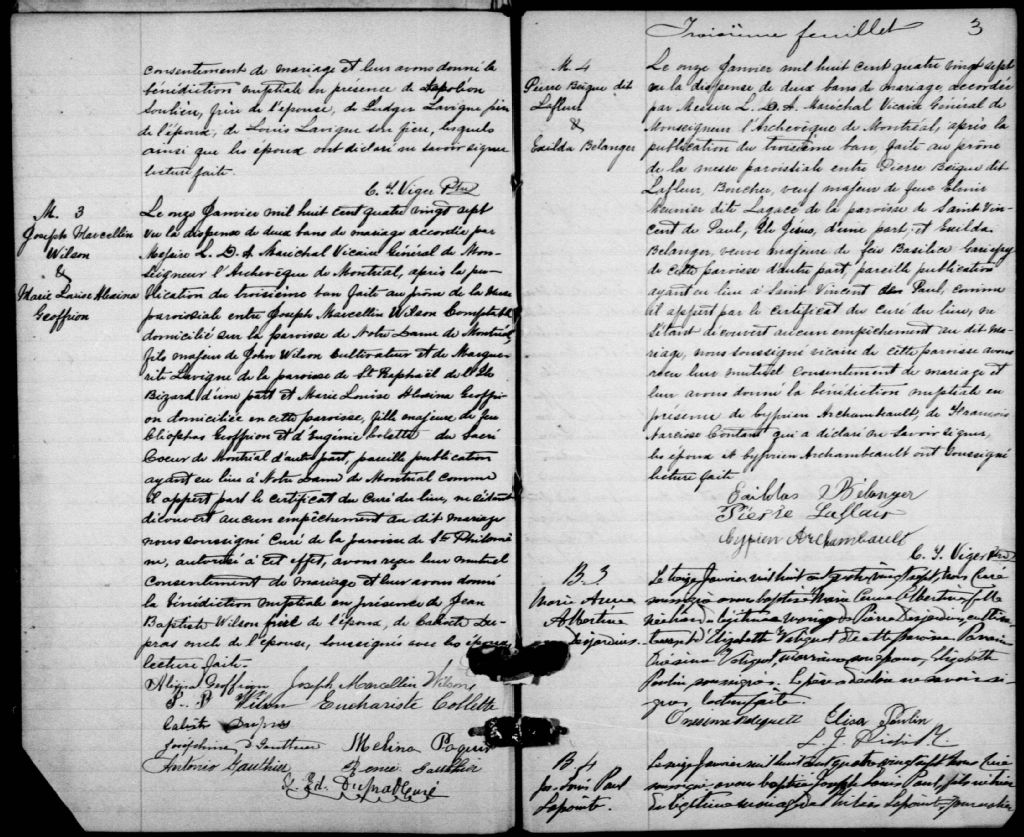 consentement de mariage et leur avons donné la
bénédiction nuptiale en présence de Napoléon
Soulière, frère de l'épouse, de Ludger Lavigne père
de l'époux, de Louis Lavigne son lesquels
ainsi que les époux ont déclaré ne savoir signer
lecture faite.
C. T. Viger Ptre
M. 3
Joseph Marcellin
Wilson
&
Marie Louise Alexina
Geoffrion
Le onze Janvier mil huit cent quatre vingt sept
vu la dispense de deux bans de mariage accordée par
Messire L. D. A. Maréchal Vicaire Général de Mon-
seigneur l'Archevêque de Montréal, après la pu-
blication du troisième ban faite au prône de la messe
paroissiale entre Joseph Marcellin Wilson Comptable
domicilié sur la paroisse de Notre Dame de Montréal,
fils majeur de John Wilson Cultivateur et de Margue-
rite Lavigne de la paroisse de St Raphaël de l'Ile
Bizard d'une part et Marie Louise Alexina Geoffri-
on domiciliée en cette paroisse, fille majeure de feu
Cléophas Geoffrion et d'Eugénie Colette du Sacré
Coeur de Montréal d'autre part, pareille publication
ayant eu lieu à Notre Dame de Montréal comme
il appert par le certificat du Curé du lieu, ne s'étant
découvert aucun empêchement au dit mariage
nous soussigné Curé de la paroisse de Ste Philomè-
ne, autorisé à cet effet, avons reçu leur mutuel
consentement de mariage et leur avons donné
la bénédiction nuptiale en présence de Jean
Baptiste Wilson frère de l'époux, de Calixte Du-
pras oncle de l'épouse, soussignés avec les époux
lecture faite.
Alexina Geoffrion Joseph Marcellin Wilson
Wilson Euchariste Collette
Calixte Dupras
Joséphine D Gauthier Melina Paquin
Antonio Gauthier Gauthier
Ed. Dupras Curé
Troisième feuillet 3
M. 4
Pierre Boigue dit
Lafleur
&
Exilda Belanger
Le onze Janvier mil huit cent quatre vingt sept
vu la dispense de deux bans de mariage accordée
par Messire L. D. A. Maréchal Vicaire Général de
Monseigneur l'Archevêque de Montréal, après la
publication du troisième ban, faite au prône
de la messe paroissiale entre Pierre Boigue dit
Lafleur, Boucher, veuf majeur de feue
Meunier dite Lagacé de la paroisse de Saint Vin-
cent de Paul, Ile Jesus, d'une part, et Exilda
Belanger, veuve majeure de feu Basilice
de cette paroisse d'autre part, pareille publication
ayant eu lieu à Saint Vincent de Paul, comme
il appert par le certificat du curé du lieu, ne
s'étant découvert aucun empêchement au dit ma-
riage, nous soussigné vicaire de cette paroisse avons
reçu leur mutuel consentement de mariage et
leur avons donné la bénédiction nuptiale en
présence de Cyprien Archambault, de François
Narcisse Contant qui a déclaré ne savoir signer,
les époux et Cyprien Archambault ont soussigné
lecture faite
Exildas Bélanger
Pierre Lafleur
Cyprien Archambault
C. T. Viger Ptre
B. 3
Marie
Albertine
Desjardins.
Le treize Janvier mil huit cent quatre vingt sept, nous Curé
soussigné avons baptisé Marie Albertine, fille
née hier du légitime mariage de Pierre Desjardins, cultiva-
teur, et de Elizabeth de cette paroisse. Parrain
Onésime marraine son épouse, Elizabeth
Poulin soussignés. Le père a déclaré ne savoir si-
gner. Lecture faite.
Onesime Elisa Poulin
L. J.
B. 4
Jos. Louis Paul
Lapointe.
Le seize Janvier mil huit cent quatre vingt sept Nous Curé
soussigné avons baptisé Joseph Louis Paul, fils né hier
du légitime mariage de Lapointe, journalier